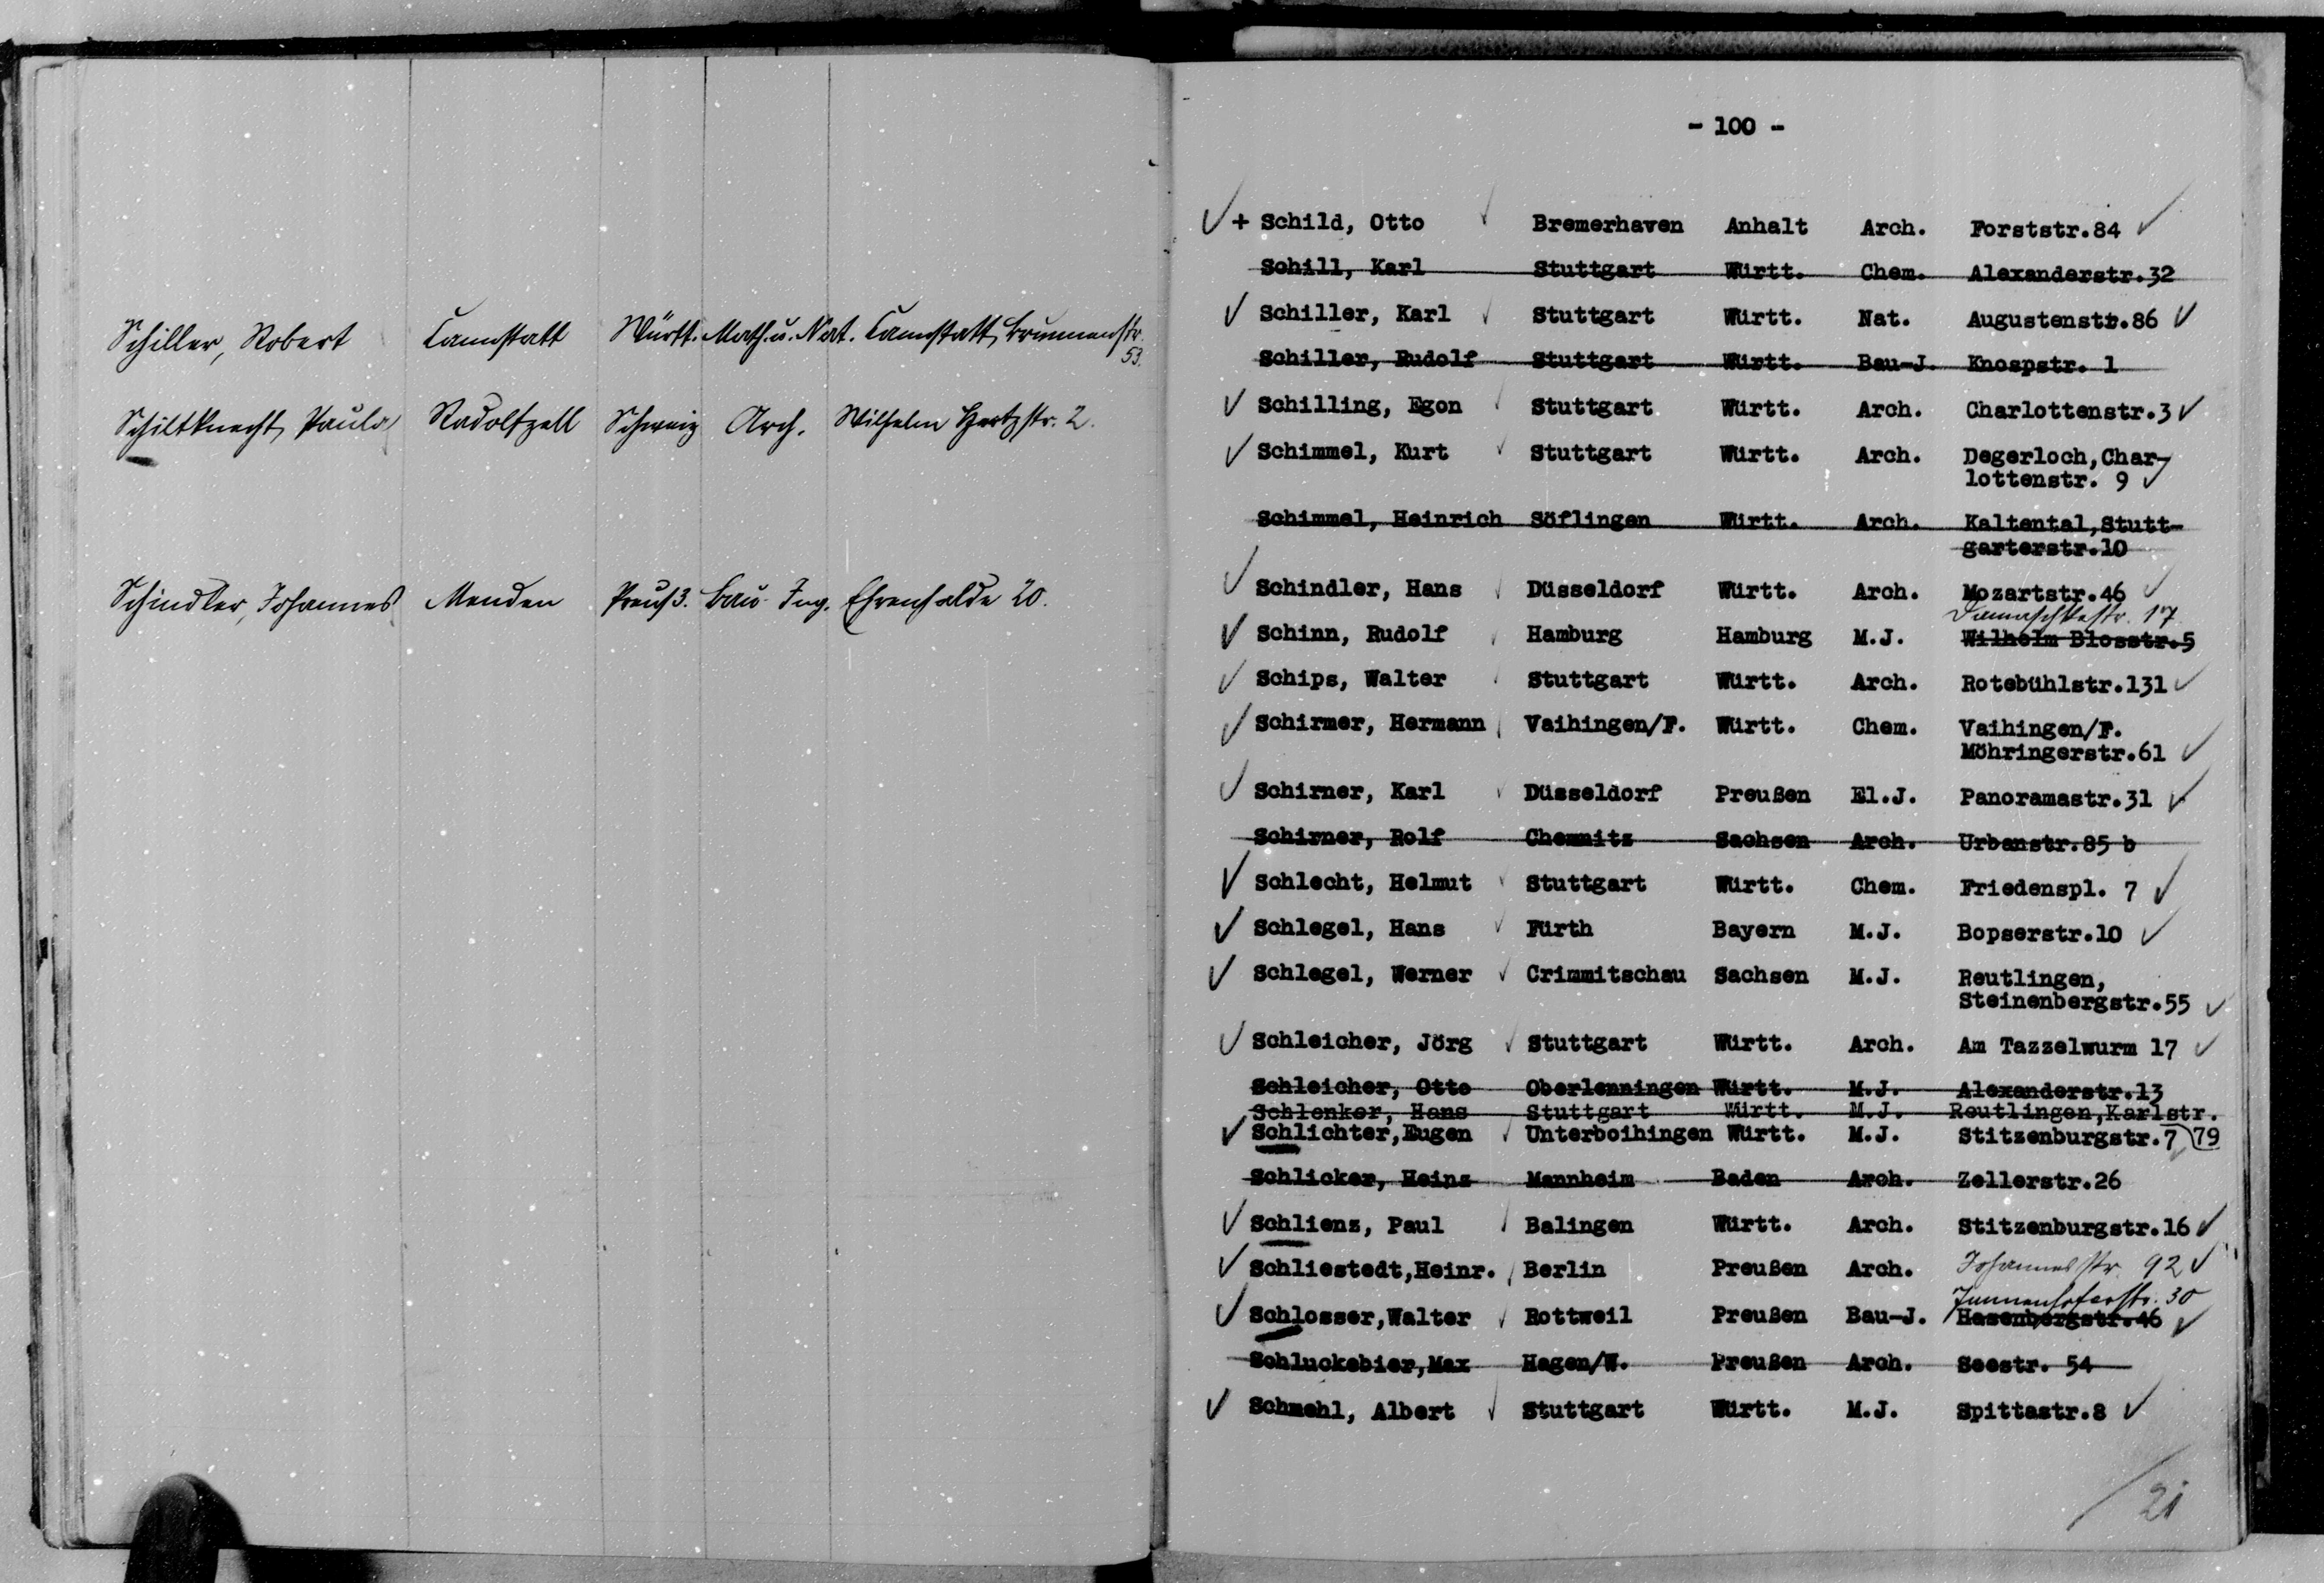 Schiller, Robert Cannstatt Württ. Math. u. Nat. Cannstatt, Brunnenstr.
53.
Schiltknecht, Paula Radolfzell Schweiz Arch. Wilhelm Hertzstr. 2.
Schindler, Johannes Menden Preuß. Bau-Ing. Ehrenhalde 20.
- 100 -
✓ + Schild, Otto ✓ Bremerhaven Anhalt Arch. Forststr.84 ✓
Schill, Karl Stuttgart Württ. Chem. Alexanderstr.32
✓ Schiller, Karl ✓ Stuttgart Württ. Nat. Augustenstr.86 ✓
Schiller, Rudolf Stuttgart Württ. Bau-J. Knospstr. 1
✓ Schilling, Egon ✓ Stuttgart Württ. Arch. Charlottenstr.3 ✓
✓ Schimmel, Kurt ✓ Stuttgart Württ. Arch. Degerloch,Char-
lottenstr. 9 ✓
Schimmel, Heinrich Söflingen Württ. Arch. Kaltental,Stutt-
garterstr.10
✓ Schindler, Hans ✓ Düsseldorf Württ. Arch. Mozartstr.46 ✓
Damaschkestr. 17
✓ Schinn, Rudolf ✓ Hamburg Hamburg M.J. Wilhelm Blosstr.5
✓ Schips, Walter ✓ Stuttgart Württ. Arch. Rotebühlstr.131 ✓
✓ Schirmer, Hermann ✓ Vaihingen/F. Württ. Chem. Vaihingen/F.
Möhringerstr.61 ✓
✓ Schirner, Karl ✓ Düsseldorf Preußen El.J. Panoramastr.31 ✓
Schirner, Rolf Chemnitz Sachsen Arch. Urbanstr.85 b
✓ Schlecht, Helmut ✓ Stuttgart Württ. Chem. Friedenspl. 7 ✓
✓ Schlegel, Hans ✓ Fürth Bayern M.J. Bopserstr.10 ✓
✓ Schlegel, Werner ✓ Crimmitschau Sachsen M.J. Reutlingen,
Steinenbergstr.55 ✓
✓ Schleicher, Jörg ✓ Stuttgart Württ. Arch. Am Tazzelwurm 17 ✓
Schleicher, Otto Oberlenningen Württ. M.J. Alexanderstr.13
Schlenker, Hans Stuttgart Württ. M.J. Reutlingen,Karlstr.
✓ Schlichter,Eugen ✓ Unterboihingen Württ. M.J. Stitzenburgstr.7 79
Schlicker, Heinz Mannheim Baden Arch. Zellerstr.26
✓ Schlienz, Paul ✓ Balingen Württ. Arch. Stitzenburgstr.16 ✓
✓ Schliestedt,Heinr. ✓ Berlin Preußen Arch. Johannesstr. 92 ✓
Immenhoferstr. 30
✓ Schlosser,Walter ✓ Rottweil Preußen Bau-J. Hasenbergstr.46 ✓
Schluckebier,Max Hagen/W. Preußen Arch. Seestr. 54
✓ Schmehl, Albert ✓ Stuttgart Württ. M.J. Spittastr.8 ✓
/21